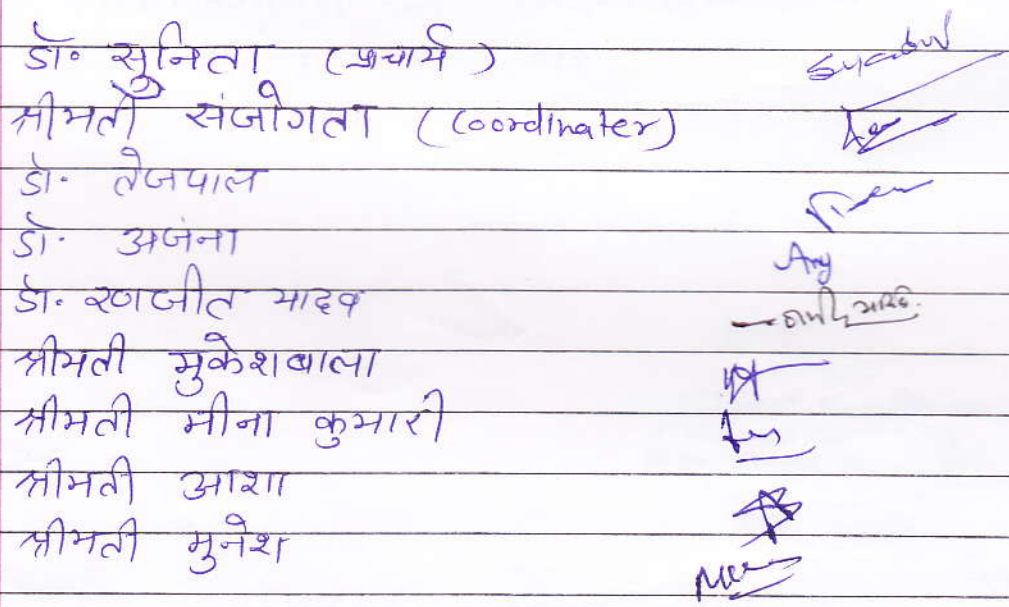 डॉ॰ सुनिता (प्राचार्य)
श्रीमती संजोगता (Coordinater)
डॉ॰ तेजपाल
डॉ॰ अजंना
डॉ॰ रणजीत यादव
श्रीमती मुकेशबाला
श्रीमती मीना कुमारी
श्रीमती आशा
श्रीमती मुनेश